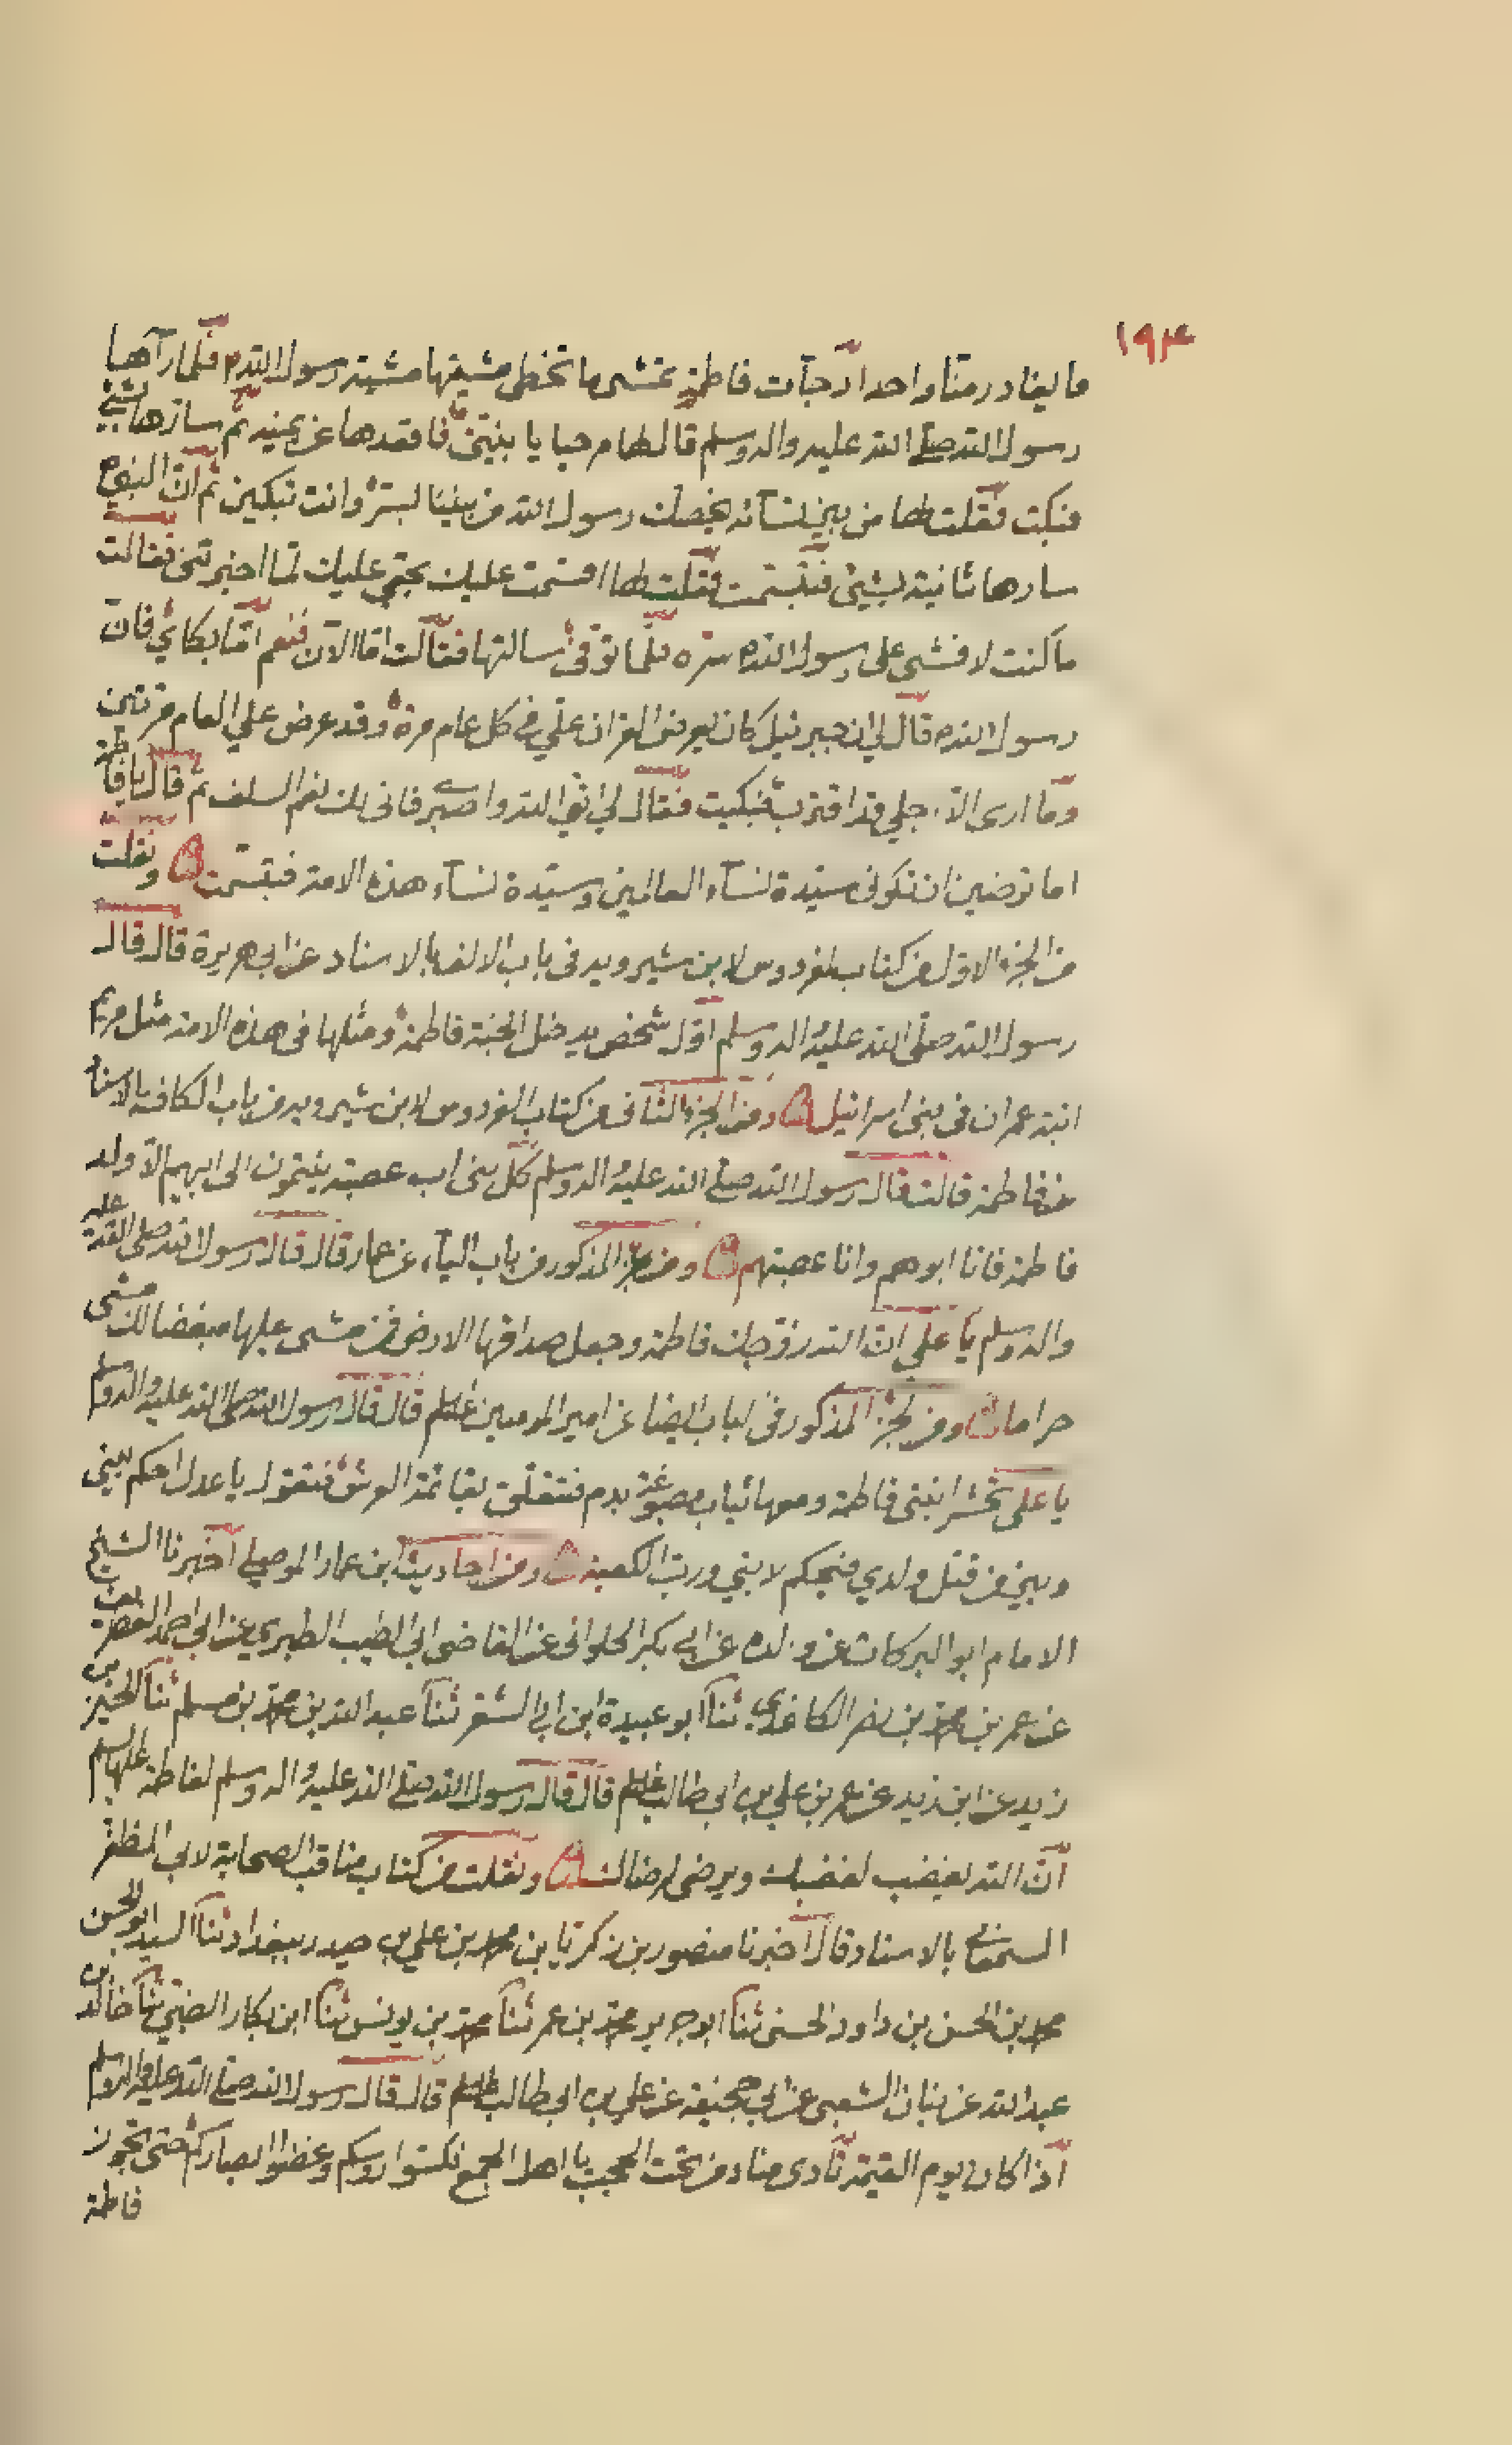 ١٩٣
ما يغادر منا واحدا اذ جآت فاطمة تمشى ما تخطى مشيتها مشية رسول الله ص فلما رآها
رسول الله صلى الله عليه واله وسلم قال لها مرحبا يا بنيتى فاقعدها عن يمينه ثم سارها بشئ
فبكت فقلت لها من بين نسآئه يخصك رسول الله من بيننا بسره وانت تبكين ثم ان النبى ص
سارها ثانية بشئ فتبسمت فقلت لها اقسمت عليك بحقى عليك لما اخبرتنى فقالت
ما كنت لافشى على رسول الله ص سره فلما توفى سالتها فقالت اما الآن فنعم اما بكائي فان
رسول الله ص قال لي ان جبرئيل كان يعرض القران علي في كل عام مرة وقد عرض علي العام مرتين
وما ارى الا اجلي قد اقترب فبكيت فقال لي اتقي الله واصبري فانى لك نعم السلف ثم قال يا فاطمة
اما ترضين ان تكونى سيدة نسآء العالمين وسيدة نسآء هذه الامة فتبسمت ونقلت
من الجزء الاول من كتاب الفردوس لابن شيرويه فى باب الالف بالاسناد عن ابى هريرة قال قال
رسول الله صلى الله عليه واله وسلم اول شخص يدخل الجنة فاطمة ومثلها فى هذه الامة مثل مريم
ابنة عمران فى بنى اسرائيل ومن الجزء الثانى من كتاب الفردوس لابن شيرويه من باب الكاف بالاسناد
عن فاطمة قالت قال رسول الله صلى الله عليه واله وسلم كل بنى اب عصبة ينتمون الى ابيهم الا ولد
فاطمة فانا ابوهم وانا عصبتهم ومن الجزء المذكور من باب اليآء عن عمار قال قال رسول الله صلى الله عليه
واله وسلم يا علي ان الله زوجك فاطمة وجعل صداقها الارض فمن مشى عليها مبغضا لك مشى
حراما ومن الجزء المذكور فى الباب ايضا عن امير المومنين عليه السلم قال قال رسول الله صلى الله عليه واله وسلم
يا على تحشر ابنتى فاطمة ومعها ثياب مصبوغة بدم فتتعلق بقائمة العرش فتقول يا عدل احكم بينى
وبين من قتل ولدي فيحكم لابنتي ورب الكعبة ومن احاديث ابن عمار الموصلي اخبرنا الشيخ
الامام ابو البركات عن والده عن ابى بكر الحلوانى عن القاضى ابى الطيب الطبرى عن ابى احمد
عن عمر بن محمد بن نصر الكاغدي ثنا ابو عبيدة ابن ابى السفر ثنا عبد الله بن محمد بن مسلم ثنا الحسين بن
زيد عن ابن زيد عن عمر بن علي بن ابى طالب عليه السلم قال قال رسول الله صلى الله عليه واله وسلم لفاطمة عليها السلم
ان الله يغضب لغضبك ويرضى لرضاك ونقلت من كتاب مناقب الصحابة لابى المظفر
السمعانى بالاسناد قال اخبرنا منصور بن زكريا بن محمد بن علي بن حيدر ببغداد ثنا السيد ابو الحسن
محمد بن الحسن بن داود الحسنى ثنا ابو جرير محمد بن عمر ثنا محمد بن يونس ثنا ابن بكار الضبي ثنا خالد بن
عبد الله عن بنان الشعبى عن ابى جحيفة عن علي بن ابى طالب عليه السلم قال قال رسول الله صلى الله عليه واله وسلم
اذا كان يوم القيمة نادى مناد من تحت الحجب يا اهل الجمع نكسوا روسكم وغضوا ابصاركم حتى تجوز
فاطمة